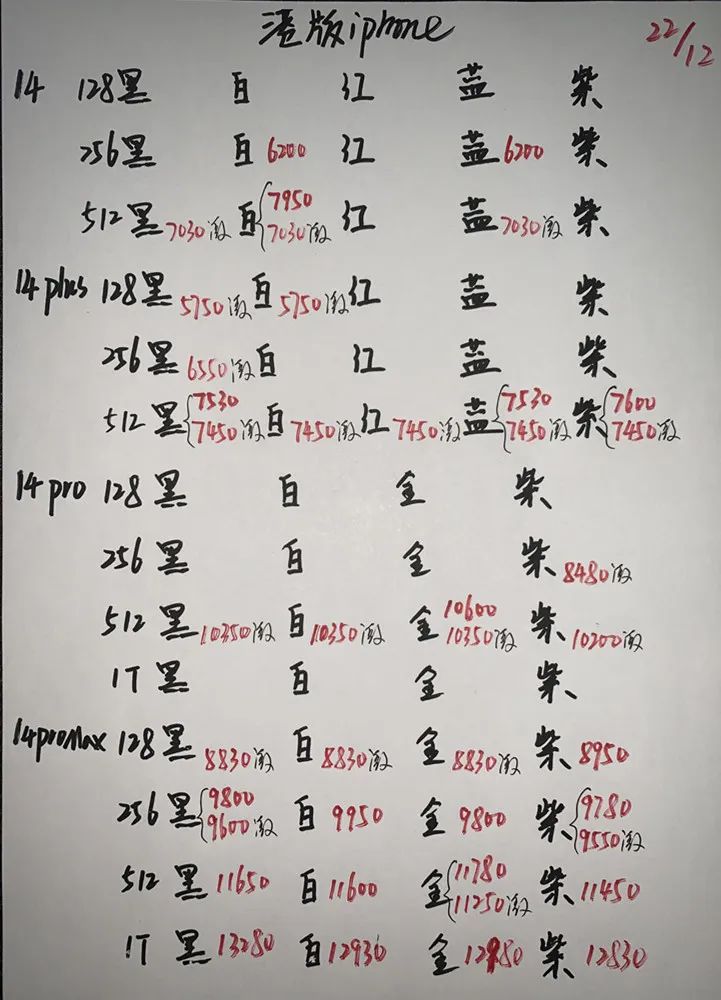 港版iphone 22/12
14 128黑 白 红 蓝 紫
256黑 白6200 红 蓝6200 紫
512黑7030激 白{7950 7030激 红 蓝7030激 紫
14plus 128黑5750激 白5750激 红 蓝 紫
256黑6550激 白 红 蓝 紫
512黑{7530 7450激 白7450激 红7450激 蓝{7530 7450激 紫{7600 7450激
14pro 128黑 白 金 紫
256黑 白 金 紫8480激
512黑10350激 白10350激 金10600 10350激 紫10200激
1T黑 白 金 紫
14promax 128黑8830激 白8830激 金8830激 紫8950
256黑{9800 9600激 白9950 金9800 紫{9780 9550激
512黑11650 白11600 金{11780 11250激 紫11450
1T黑13280 白12930 金12980 紫12830